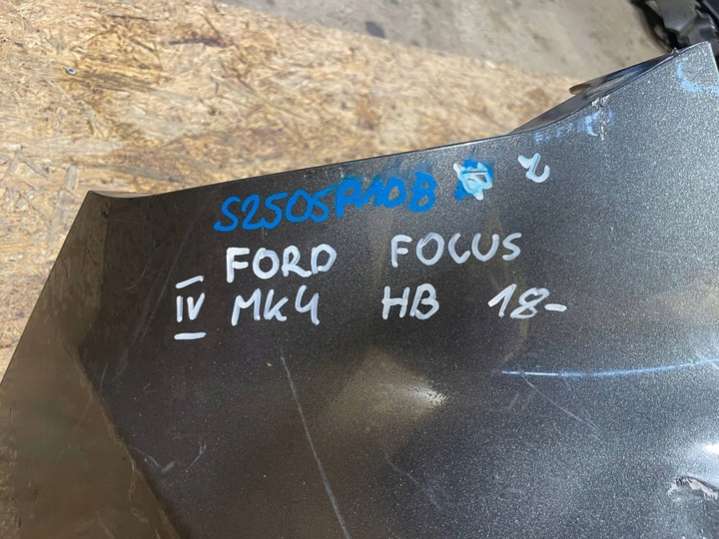 S2505P10B
FORD FOCUS
IV MK4 HB 18-